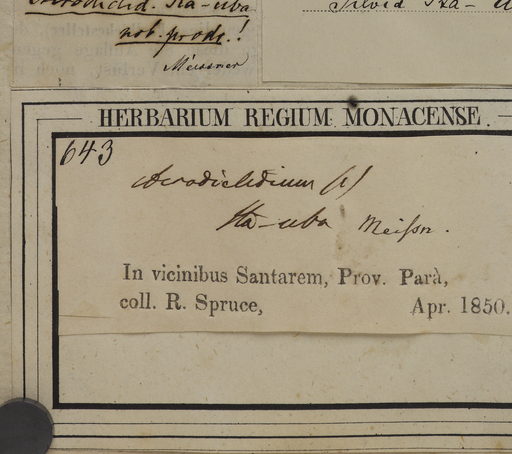 Acrodiclid. Ita-uba
nob. prodr.!
Meissner
Silvia Ita-u
HERBARIUM REGIUM MONACENSE.
643
Acrodiclidium (?)
Ita-uba Meissn.
In vicinibus Santarem, Prov. Parà,
coll. R. Spruce, Apr. 1850.